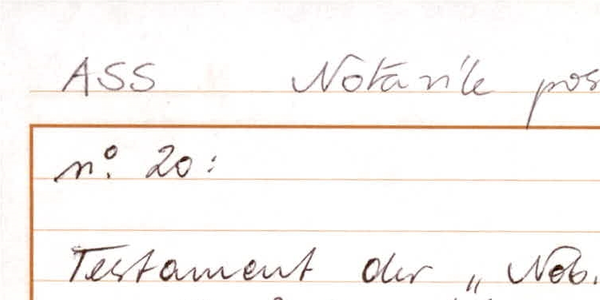 ASS Notarile pos
n° 20:
Testament der „Nob.